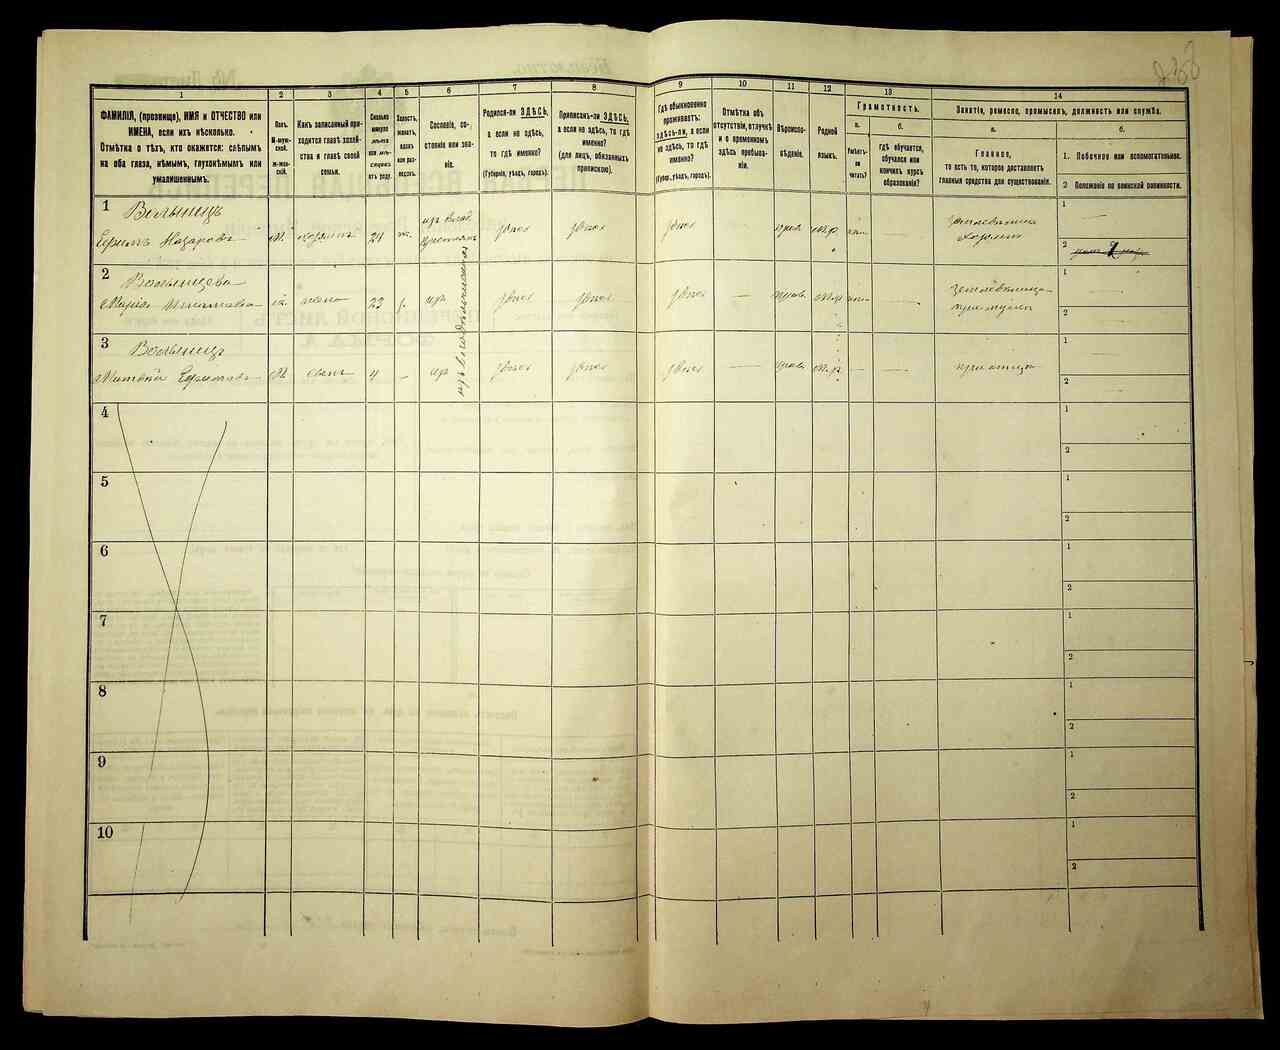 1
ФАМИЛІЯ, (прозвище), ИМЯ и ОТЧЕСТВО или
ИМЕНА, если ихъ нѣсколько.
Отмѣтка о тѣхъ, кто окажется: слѣпымъ
на оба глаза, нѣмымъ, глухонѣмымъ или
умалишеннымъ.
2
Полъ.
М-муж-
ской.
ж-жен-
скій.
3
Какъ записанный при-
ходится главѣ хозяй-
ства и главѣ своей
семьи.
4
Сколько
минуло
лѣтъ
или мѣ-
сяцевъ
отъ роду.
5
Холостъ,
женатъ,
вдовъ
или раз-
веденъ.
6
Сословіе, со-
стояніе или зва-
ніе.
7
Родился-ли ЗДѢСЬ,
а если не здѣсь,
то гдѣ именно?
(Губернія, уѣздъ, городъ).
8
Приписанъ-ли ЗДѢСЬ,
а если не здѣсь, то гдѣ
именно?
(для лицъ, обязанныхъ
припискою).
9
Гдѣ обыкновенно
проживаетъ:
ЗДѢСЬ-ЛИ, а если
не здѣсь, то гдѣ
именно?
(Губер., уѣздъ, городъ).
10
Отмѣтка объ
отсутствіи, отлучкѣ
и о временномъ
здѣсь пребыва-
ніи.
11
Вѣроиспо-
вѣданіе.
12
Родной
языкъ.
13
Грамотность.
а.
Умѣетъ-
ли
читать?
б.
Гдѣ обучается,
обучался или
кончилъ курсъ
образованія?
14
Занятіе, ремесло, промыселъ, должность или служба.
а.
Главное,
то есть то, которое доставляетъ
главныя средства для существованія.
б.
1. Побочное или вспомогательное.
2 Положеніе по воинской повинности.
1
Волынецъ
Ефимъ Назаровъ
М. хозяинъ
здѣсь здѣсь здѣсь
земледѣлецъ
хозяинъ
1
2
2
Волынцева
Марія Игнатьева
ж. жена 23 з. здѣсь здѣсь здѣсь — прав. м.р —
земледѣлица
при мужѣ
1
2
3
Волынец
Митвѣй Ефимовъ
М сынъ 4 — здѣсь здѣсь здѣсь — прав. м.р. —
при отцѣ
1
2
4
1
2
5
1
2
6
1
2
7
1
2
8
1
2
9
1
2
10
1
2